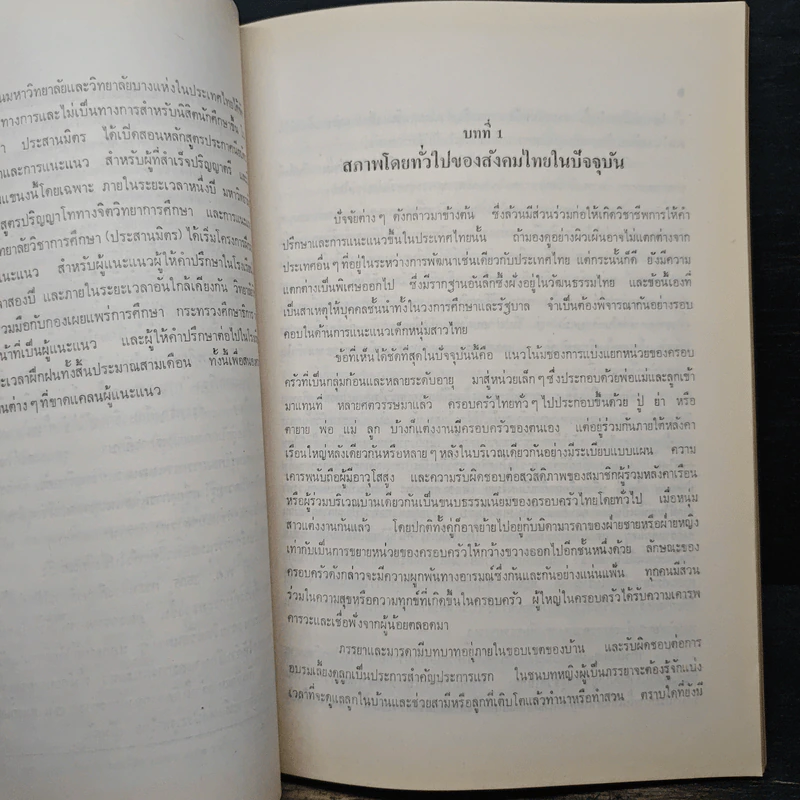 นมหาวิทยาลัยและวิทยาลัยบางแห่งในประเทศไทยได้
ทางการและไม่เป็นทางการสำหรับนิสิตนักศึกษาขึ้น
ประสานมิตร ได้เปิดสอนหลักสูตร
และการแนะแนว สำหรับผู้ที่สำเร็จปริญญาตรี
แขนงนี้โดยเฉพาะ ภายในระยะเวลาหนึ่งปี
สูตรปริญญาโททางจิตวิทยาการศึกษา และการแนะแนว
ทยาลัยวิชาการศึกษา (ประสานมิตร) ได้เริ่มโครงการ
แนะแนว สำหรับผู้แนะแนวผู้ให้คำปรึกษาในโรงเรียน
ลาสองปี และภายในระยะเวลาอันใกล้เคียงกัน
ร่วมมือกับกองเผยแพร่การศึกษา กระทรวงศึกษาธิการ
น้าที่เป็นผู้แนะแนว และผู้ให้คำปรึกษาต่อไปใน
ะเวลาฝึกฝนทั้งสิ้นประมาณสามเดือน ทั้งนี้เพื่อ
นต่าง ๆ ที่ขาดแคลนผู้แนะแนว
บทที่ 1
สภาพโดยทั่วไปของสังคมไทยในปัจจุบัน
ปัจจัยต่าง ๆ ดังกล่าวมาข้างต้น ซึ่งล้วนมีส่วนร่วมก่อให้เกิดวิชาชีพการให้คำ
ปรึกษาและการแนะแนวขึ้นในประเทศไทยนั้น ถ้ามองดูอย่างผิวเผินอาจไม่แตกต่างจาก
ประเทศอื่น ๆ ที่อยู่ในระหว่างการพัฒนาเช่นเดียวกับประเทศไทย แต่กระนั้นก็ดี ยังมีความ
แตกต่างเป็นพิเศษออกไป ซึ่งมีรากฐานอันลึกซึ้งฝังอยู่ในวัฒนธรรมไทย และข้อนี้เอง
เป็นสาเหตุให้บุคคลชั้นนำทั้งในวงการศึกษาและรัฐบาล จำเป็นต้องพิจารณากันอย่างรอบ
คอบในด้านการแนะแนวเด็กหนุ่มสาวไทย
ข้อที่เห็นได้ชัดที่สุดในปัจจุบันนี้คือ แนวโน้มของการแบ่งแยกหน่วยของครอบ
ครัวที่เป็นกลุ่มก้อนและหลายระดับอายุ มาสู่หน่วยเล็ก ๆ ซึ่งประกอบด้วยพ่อแม่และลูกเข้า
มาแทนที่ หลายศตวรรษมาแล้ว ครอบครัวไทยทั่ว ๆ ไปประกอบขึ้นด้วย ปู่ ย่า หรือ
ตายาย พ่อ แม่ ลูก บ้างก็แต่งงานมีครอบครัวของตนเอง แต่อยู่ร่วมกันภายใต้หลังคา
เรือนใหญ่หลังเดียวกันหรือหลาย ๆ หลังในบริเวณเดียวกันอย่างมีระเบียบแบบแผน ความ
เคารพนับถือผู้มีอาวุโสสูง และความรับผิดชอบต่อสวัสดิภาพของสมาชิกผู้ร่วมหลังคาเรือน
หรือผู้ร่วมบริเวณบ้านเดียวกันเป็นขนบธรรมเนียมของครอบครัวไทยโดยทั่วไป เมื่อหนุ่ม
สาวแต่งงานกันแล้ว โดยปกติทั้งคู่ก็อาจย้ายไปอยู่กับบิดามารดาของฝ่ายชายหรือฝ่ายหญิง
เท่ากับเป็นการขยายหน่วยของครอบครัวให้กว้างขวางออกไปอีกชั้นหนึ่งด้วย ลักษณะของ
ครอบครัวดังกล่าวจะมีความผูกพันทางอารมณ์ซึ่งกันและกันอย่างแน่นแฟ้น ทุกคนมีส่วน
ร่วมในความสุขหรือความทุกข์ที่เกิดขึ้นในครอบครัว ผู้ใหญ่ในครอบครัวได้รับความเคารพ
คารวะและเชื่อฟังจากผู้น้อยตลอดมา
ภรรยาและมารดามีบทบาทอยู่ภายในขอบเขตของบ้าน และรับผิดชอบต่อการ
อบรมเลี้ยงดูลูกเป็นประการสำคัญประการแรก ในชนบทหญิงผู้เป็นภรรยาจะต้องรู้จักแบ่ง
เวลาที่จะดูแลลูกในบ้านและช่วยสามีหรือลูกที่เติบโตแล้วทำนาหรือทำสวน ตราบใดที่ยังมี